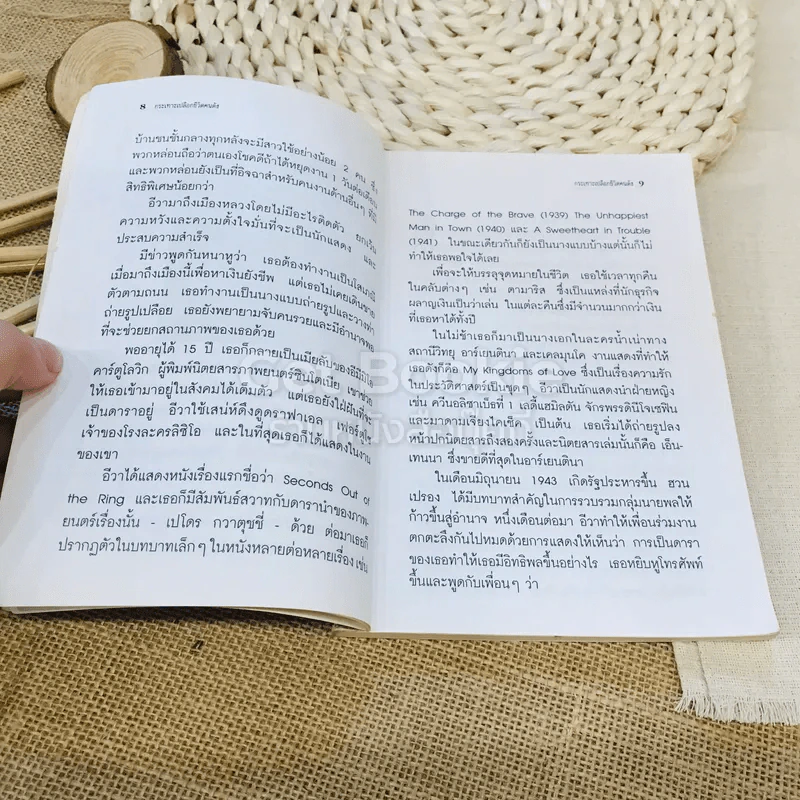 8 กระเทาะเปลือกชีวิตคนดัง
บ้านชนชั้นกลางทุกหลังจะมีสาวใช้อย่างน้อย 2 คน ซึ่ง
พวกหล่อนถือว่าตนเองโชคดีถ้าได้หยุดงาน 1 วันต่อเดือน
และพวกหล่อนยังเป็นที่อิจฉาสำหรับคนงานด้านอื่นๆ ที่มี
สิทธิพิเศษน้อยกว่า
อีวามาถึงเมืองหลวงโดยไม่มีอะไรติดตัว ยกเว้น
ความหวังและความตั้งใจมั่นที่จะเป็นนักแสดง และ
ประสบความสำเร็จ
มีข่าวพูดกันหนาหูว่า เธอต้องทำงานเป็นโสเภณี
เมื่อมาถึงเมืองนี้เพื่อหาเงินยังชีพ แต่เธอไม่เคยเดินขาย
ตัวตามถนน เธอทำงานเป็นนางแบบถ่ายรูปและวางท่า
ถ่ายรูปเปลือย เธอยังพยายามจับคนรวยและมีอำนาจพอ
ที่จะช่วยยกสถานภาพของเธอด้วย
พออายุได้ 15 ปี เธอก็กลายเป็นเมียลับของอีมิปิโอ
คาร์ตูโลวิก ผู้พิมพ์นิตยสารภาพยนตร์ซินโตเนีย เขาช่วย
ให้เธอเข้ามาอยู่ในสังคมได้เต็มตัว แต่เธอยังใฝ่ฝันที่จะ
เป็นดาราอยู่ อีวาใช้เสน่ห์ดึงดูดราฟาเอล เฟอร์ตูโซ
เจ้าของโรงละครลิซิโอ และในที่สุดเธอก็ได้แสดงในงาน
ของเขา
อีวาได้แสดงหนังเรื่องแรกชื่อว่า Seconds Out of
the Ring และเธอก็มีสัมพันธ์สวาทกับดารานำของภาพ-
ยนตร์เรื่องนั้น - เปโดร กวาตุชชี่ - ด้วย ต่อมาเธอก็
ปรากฏตัวในบทบาทเล็กๆ ในหนังหลายต่อหลายเรื่อง เช่น
กระเทาะเปลือกชีวิตคนดัง 9
The Charge of the Brave (1939) The Unhappiest
Man in Town (1940) และ A Sweetheart in Trouble
(1941) ในขณะเดียวกันก็ยังเป็นนางแบบบ้างแต่นั้นก็ไม่
ทำให้เธอพอใจได้เลย
เพื่อจะให้บรรลุจุดหมายในชีวิต เธอใช้เวลาทุกคืน
ในคลับต่างๆ เช่น ตามาริส ซึ่งเป็นแหล่งที่นักธุรกิจ
ผลาญเงินเป็นว่าเล่น ในแต่ละคืนซึ่งมีจำนวนมากกว่าเงิน
ที่เธอหาได้ทั้งปี
ในไม่ช้าเธอก็มาเป็นนางเอกในละครน้ำเน่าทาง
สถานีวิทยุ อาร์เยนตินาและเคลมุนโค งานแสดงที่ทำให้
เธอดังก็คือ My Kingdoms of Love ซึ่งเป็นเรื่องความรัก
ในประวัติศาสตร์เป็นชุดๆ อีวาเป็นนักแสดงนำฝ่ายหญิง
เช่น ควีนอลิซาเบ็ธที่ 1 เลดี้แฮมิลตัน จักรพรรดินีโจเซฟิน
และมาดามเจียงไคเช็ค เป็นต้น เธอเริ่มได้ถ่ายรูปลง
หน้าปกนิตยสารถึงสองครั้งและนิตยสารเล่มนั้นก็คือ เอ็น-
เทนนา ซึ่งขายดีที่สุดในอาร์เยนตินา
ในเดือนมิถุนายน 1943 เกิดรัฐประหารขึ้น ฮวน
เปรอง ได้มีบทบาทสำคัญในการรวบรวมกลุ่มนายพลให้
ก้าวขึ้นสู่อำนาจ หนึ่งเดือนต่อมา อีวาทำให้เพื่อนร่วมงาน
ตกตะลึงกันไปหมดด้วยการแสดงให้เห็นว่า การเป็นดารา
ของเธอทำให้เธอมีอิทธิพลขึ้นอย่างไร เธอหยิบหูโทรศัพท์
ขึ้นและพูดกับเพื่อนๆ ว่า